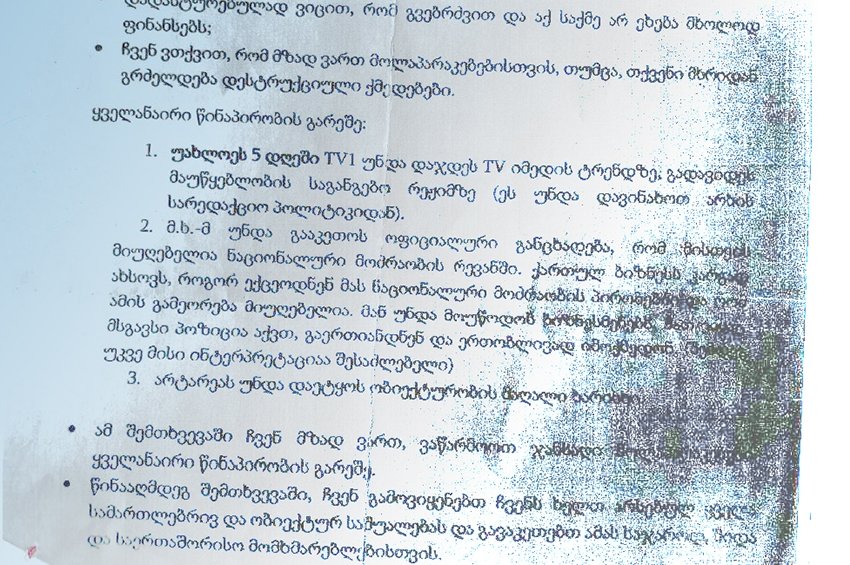 დადასტურებულად ვიცით, რომ გვებრძვით და აქ საქმე არ ეხება მხოლოდ
ფინანსებს;
• ჩვენ ვთქვით, რომ მზად ვართ მოლაპარაკებებისთვის, თუმცა, თქვენი მხრიდან
გრძელდება დესტრუქციული ქმედებები.
ყველანაირი წინაპირობის გარეშე:
1. უახლოეს 5 დღეში TV1 უნდა დაჯდეს TV იმედის ტრენდზე, გადავიდეს
მაუწყებლობის საგანგებო რეჟიმზე (ეს უნდა დავინახოთ არხის
სარედაქციო პოლიტიკიდან).
2. მ.ხ.-მ უნდა გააკეთოს ოფიციალური განცხადება, რომ მისთვის
მიუღებელია ნაციონალური მოძრაობის რევანში. ქართულ ბიზნესს კარგად
ახსოვს, როგორ ექცეოდნენ მას ნაციონალური მოძრაობის პირობებში და რომ
ამის გამეორება მიუღებელია. მან უნდა მოუწოდოს ბიზნესმენებს,
მსგავსი პოზიცია აქვთ, გაერთიანდნენ და ერთობლივად იმოქმედონ.
უკვე მისი ინტერპრეტაციაა შესაძლებელი)
3. არტარეას უნდა დაეტყოს ობიექტურობის მაღალი ხარისხი
• ამ შემთხვევაში ჩვენ მზად ვართ, ვაწარმოოთ ჯანსაღი
ყველანაირი წინაპირობის გარეშე.
• წინააღმდეგ შემთხვევაში, ჩვენ გამოვიყენებთ ჩვენს ხელთ არსებულ ყველა
სამართლებრივ და ობიექტურ საშუალებას და გავაკეთებთ ამას საჯაროდ, შიდა
და საერთაშორისო მომხმარებლებისთვის.